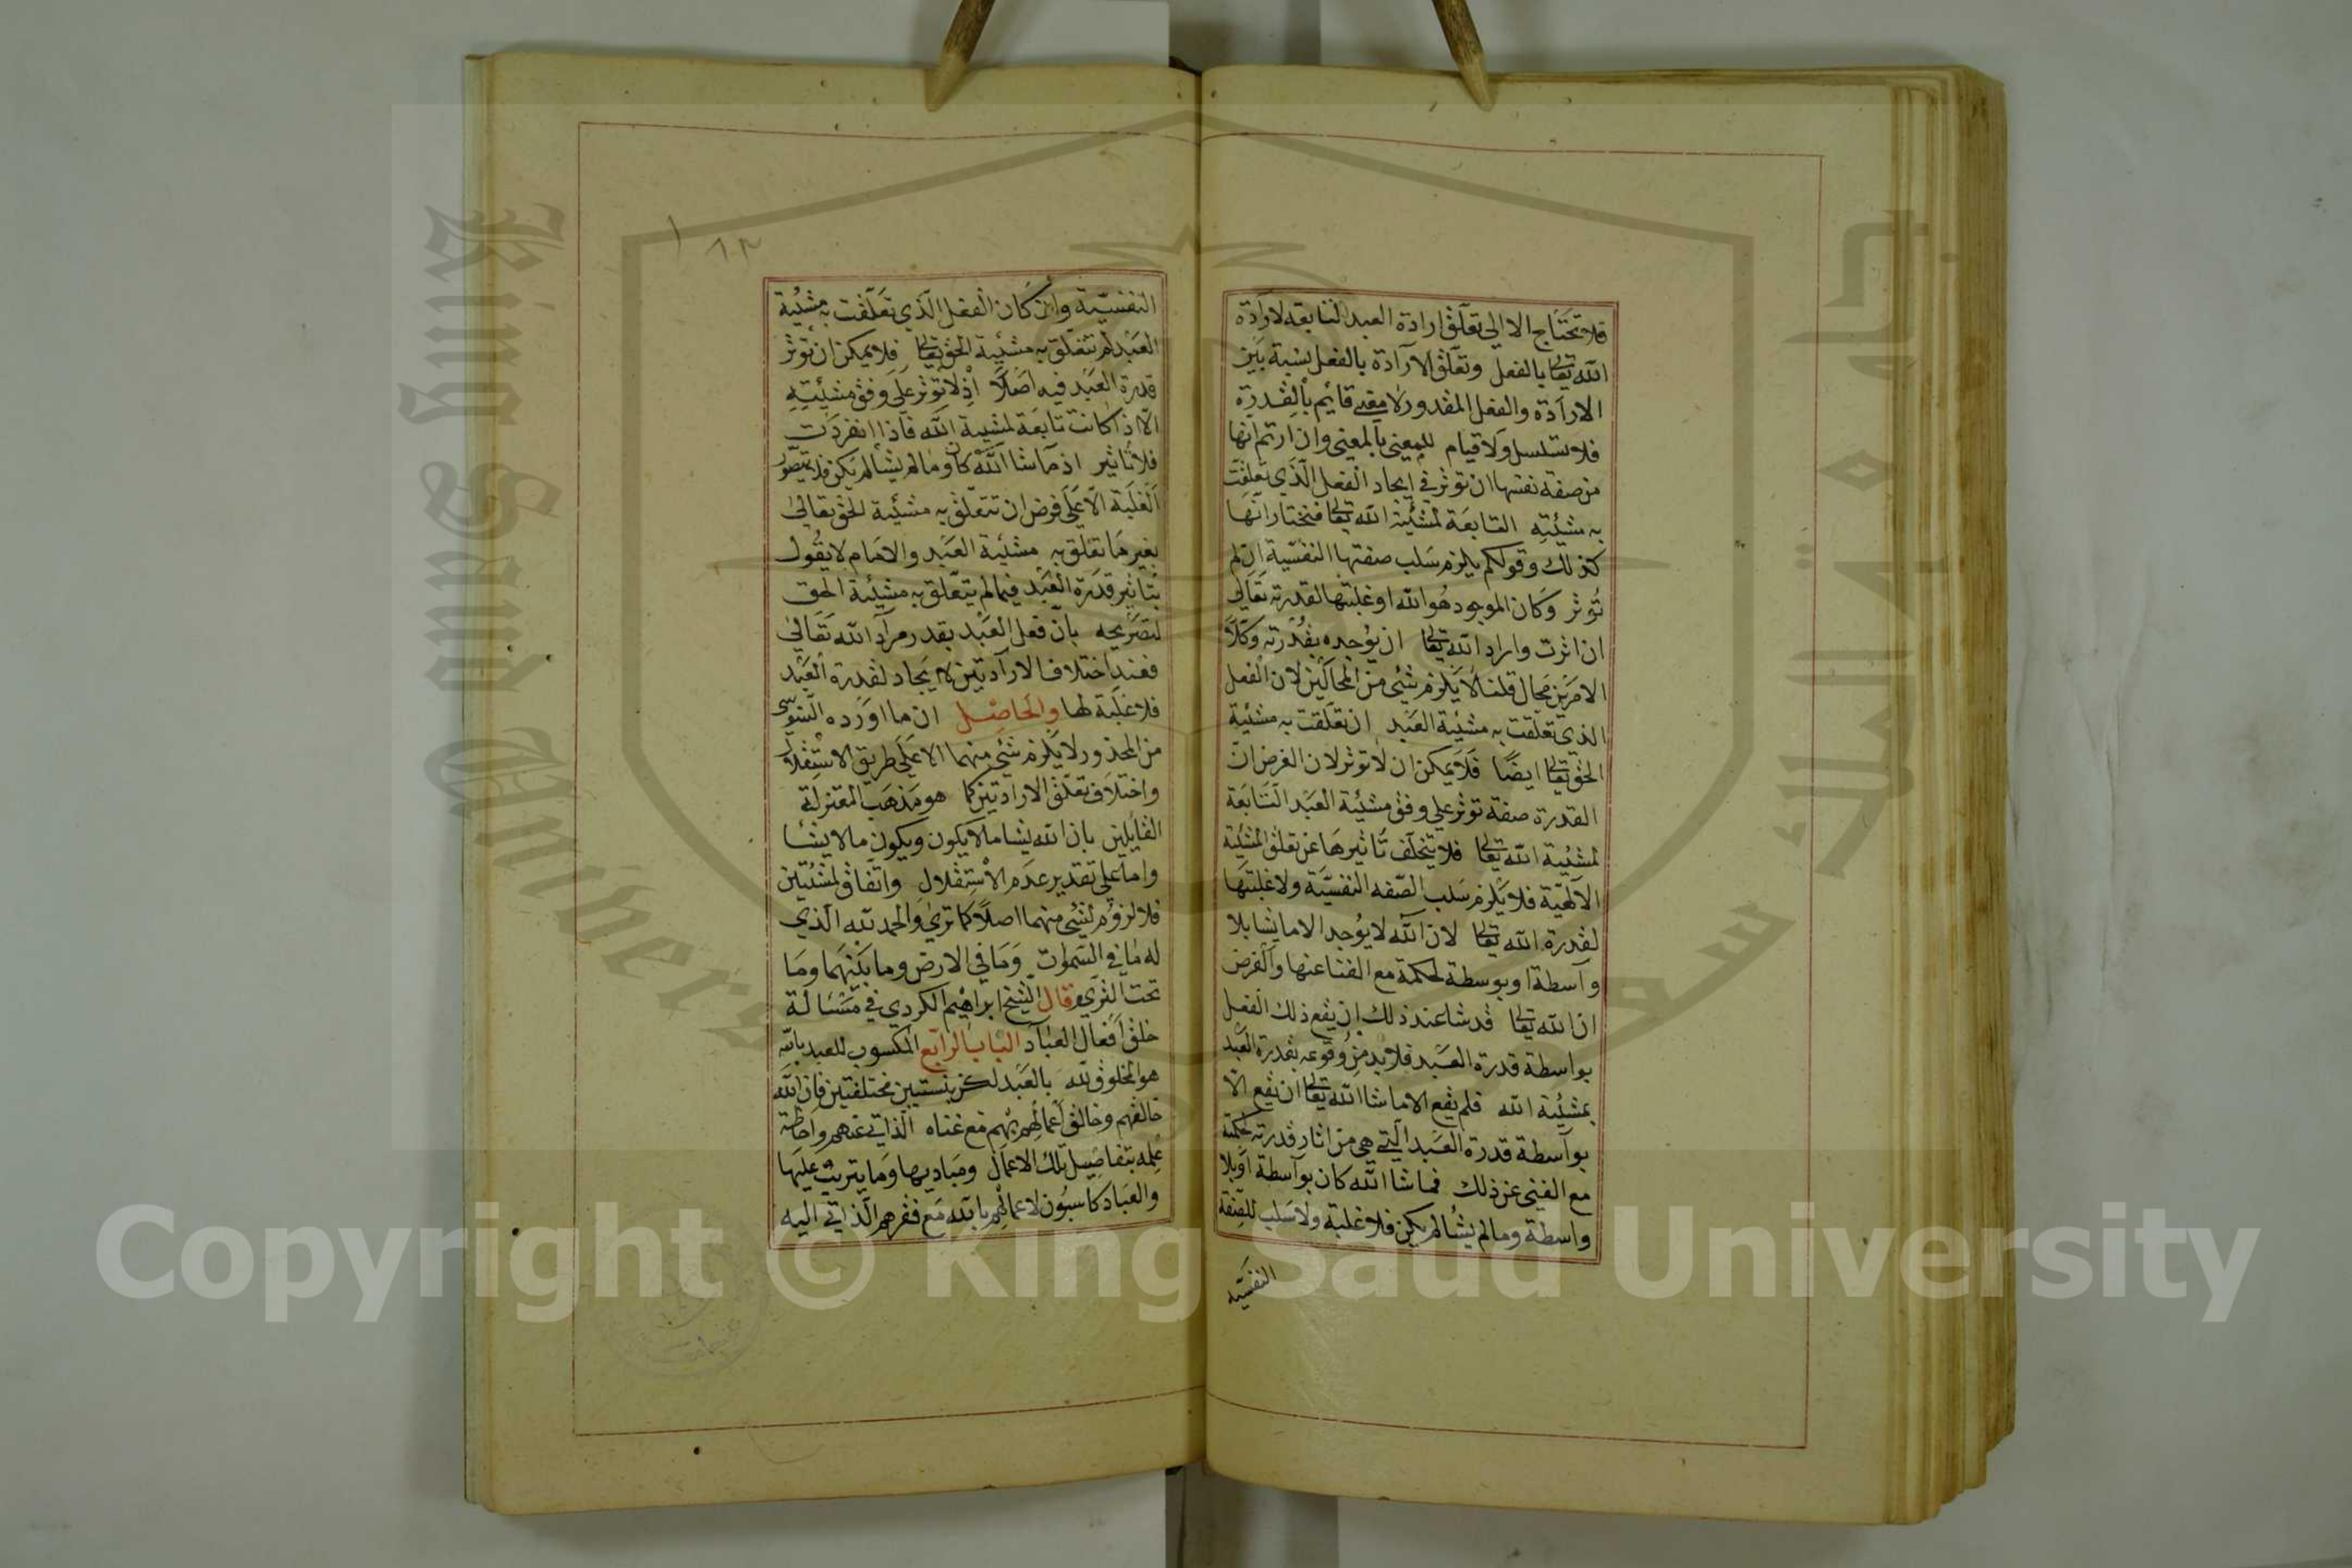 فلا تحتاج الا الى تعلّق ارادة العبد التابعة لارادة
الله تعالى بالفعل وتعلّق الارادة بالفعل نسبة بين
الارادة والفعل المقدور لا معنى قايم بالقدرة
فلا تسلسل ولا قيام للمعنى بالمعنى وان ارتم انها
من صفة نفسها ان توثر في ايجاد الفعل الّذي تعلقت
به مشيئته التابعة لمشئية الله تعالى فنختار انّها
كذلك وقولكم يلزم سلب صفتها النفسّية ان لم
تُوثر وكان الموجود هو الله او غلبتها لقدرته تعالى
ان اثرت واراد الله تعالى ان يوُجده بقُدرته وكلا
الامرين مَحال قلنا لا يلزم شئي من المحالين لان الفعل
الذي تعلقت به مشئية العَبْد ان تعلّقت به مشئية
الحق تعالى ايضًا فلا يمكن ان لا توثر لان الفرض انّ
القدرة صفة توثر علي وفق مشئية العَبْد التّابعَة
لمشئية الله تعالى فلا يتخلّف تأثيرها عن تعلّق المشئية
الآلهيّة فلا يَلْزم سَلب الصّفه النفسيّة ولا غلبتها
لقدرة الله تعالى لان اللّه لا يوُجد الا ما يشا بلا
واسطة او بوسطة لحكمة مع الغنا عنها والفرض
ان الله تعالى قد شا عند ذلك ان يقع ذلك الفعل
بواسطة قدرة العَبْد فلا بد من وُقوعه بقدرة العَبْد
بمشئية الله فلم يقع الا ما شا الله تعالى ان يقع الاّ
بواسطة قدرة العَبْد الّتي هي من اثار قدرته لحكمة
مع الغنى عن ذلك فما شا الله كان بواسطة اوبلا
واسطة وما لم يشُا لم يكن فلا غلبة ولا سَلب للصّفة
النفسيّة
١٨٢
النفسيّة وان كان الفعل الّذي تعلّقت به مشئية
العَبْد لم تتعلّق به مشئية الحق تعالى فلا يمكن ان توثر
قدرة العَبْد فيه اصْلاً اذ لا توثر علي وفق مشئيته
الاّ اذا كانت تابعة لمشيية الله فاذا انفردت
فلا تأثير اذ ما شا اللّه كان وما لم يشا لم يكن فلا يتصوّر
الغلَبة الاّ على فرض ان تتعلّق به مشئية الحق تعالى
بغير ما تعلّق به مشئية العَبْد والامام لا يقُول
بتأثير قدرة العَبْد فيما لم يتعّلق به مشئية الحق
لتصْريحه بانّ فعل العَبْد بقدر مراد اللّه تَعالى
فعند اختلاف الارادتين لا يجاد لقدرة العَبْد
فلا غلبَة لها والحاصِل ان ما اورده السّنوسي
من المحذور لا يلزم شئي منهما الا علي طريق الاستقلال
واختلاف تعلّق الارادتين كما هو مَذهَب المعتزلة
القايلين بان الله يشا ما لا يكون ويكون ما لا يشا
واما على تقدير عدم الاْستقلال واتفاق لمشئيتين
فلا لزوُم لشئي منهما اصلاً كما ترى والحمد للّه الّذي
له ما في السّموات وَمَا في الارض وما بيْنهَما وما
تحت الثرَي وقال الشّيخ ابراهيم الكردي في مَسْئالة
خلق افعال العبَاد الباب الرابَع المكسوب للعبد بالله
هو المخلوق للّه بالعَبْد لكن بنسبتين مختلفتين فان الله
خالقهم وخالق اعمالهم بهم مع غناه الذاتي عنهم واحاطة
عِلمه بتفاصيل تلك الاعمال ومَباديها وما يترتبّ عليها
والعبَاد كاسبُون لاعمالهم باللّه مَع فقرهم الّذاتي اليه
Copyright © King Saud University
King Saud University